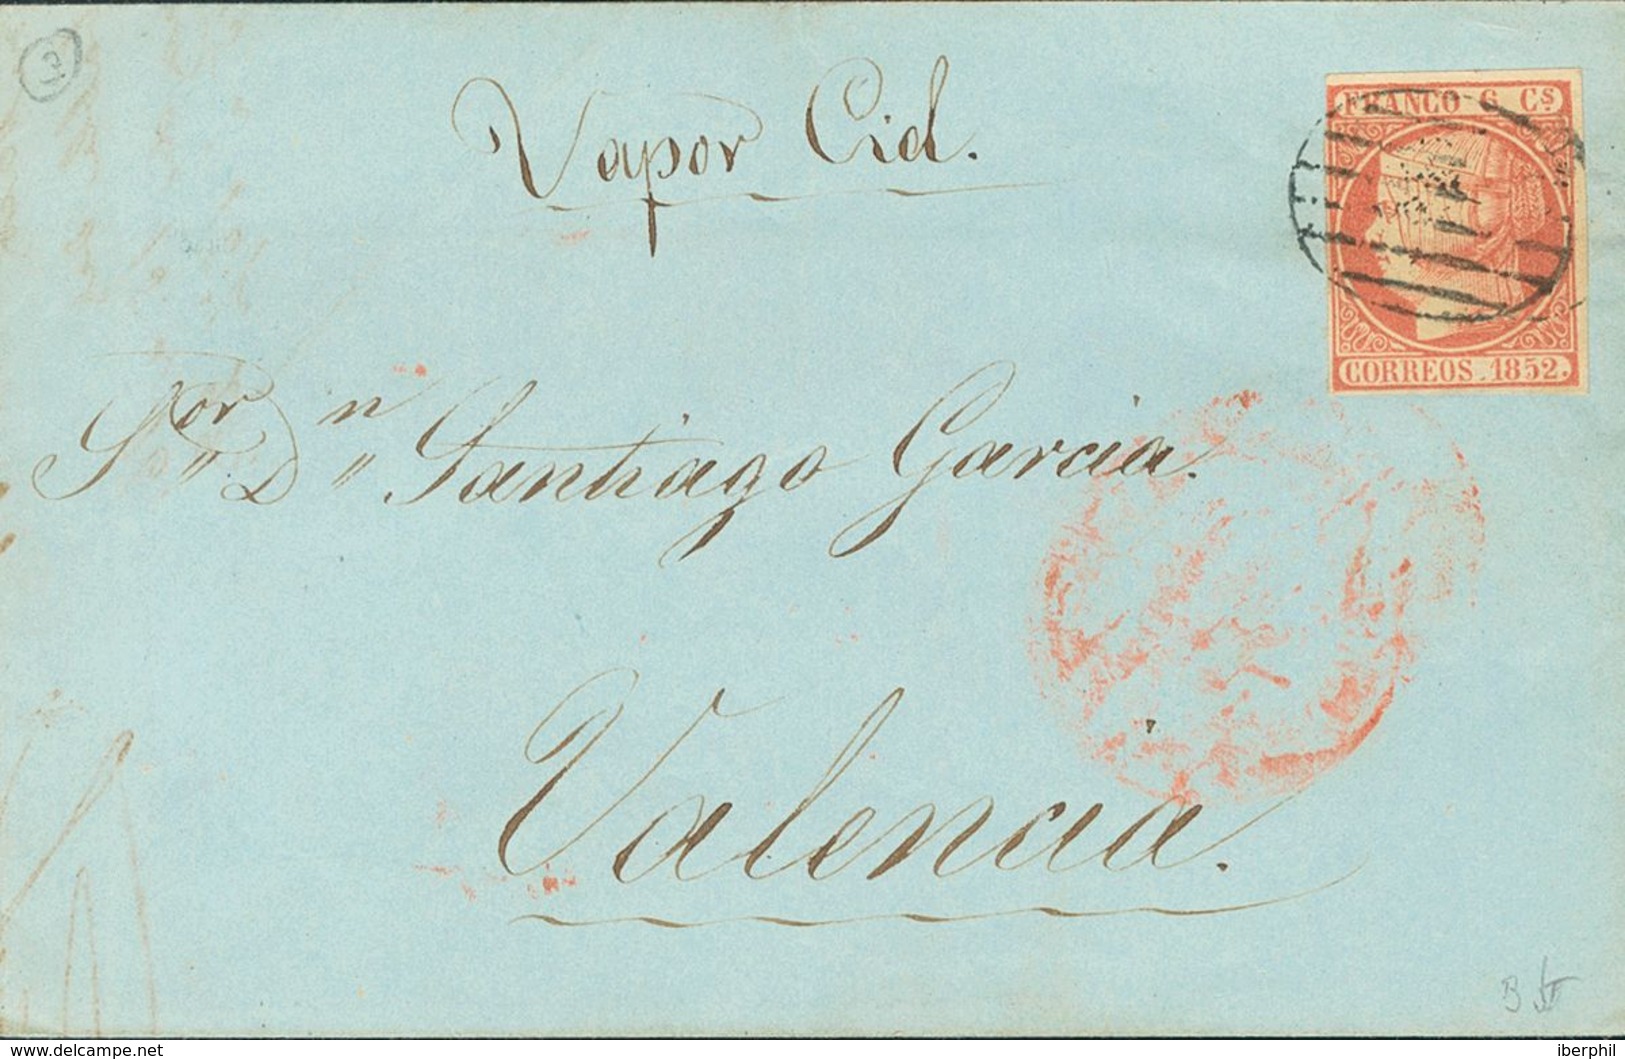 Vapor Cid.
FRANCO 6 Cs
CORREOS. 1852.
Sor Dn Santiago Garcia.
Valencia.
B
www.delcampe.net
iberphil